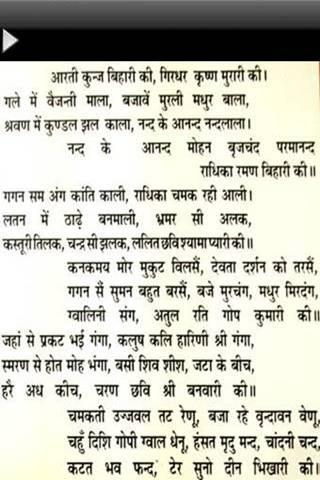 आरती कुन्ज बिहारी की, गिरधर कृष्ण मुरारी की।
गले में वैजन्ती माला, बजावें मुरली मधुर बाला,
श्रवण में कुण्डल झल काला, नन्द के आनन्द नन्दलाला।
नन्द के आनन्द मोहन बृजचंद परमानन्द
राधिका रमण बिहारी की॥
गगन सम अंग कांति काली, राधिका चमक रही आली।
लतन में ठाढ़े बनमाली, भ्रमर सी अलक,
कस्तूरी तिलक, चन्द्र सी झलक, ललित छवि श्यामा प्यारी की॥
कनकमय मोर मुकुट विलसैं, देवता दर्शन को तरसैं,
गगन सैं सुमन बहुत बरसैं, बजे मुरचंग, मधुर मिरदंग,
ग्वालिनी संग, अतुल रति गोप कुमारी की॥
जहां से प्रकट भई गंगा, कलुष कलि हारिणी श्री गंगा,
स्मरण से होत मोह भंगा, बसी शिव शीश, जटा के बीच,
हरै अध कीच, चरण छवि श्री बनवारी की॥
चमकती उज्जवल तट रेणू, बजा रहे वृन्दावन वेणू,
चहुँ दिशि गोपी ग्वाल धेनू, हंसत मृदु मन्द, चांदनी चन्द,
कटत भव फन्द, टेर सुनो दीन भिखारी की॥